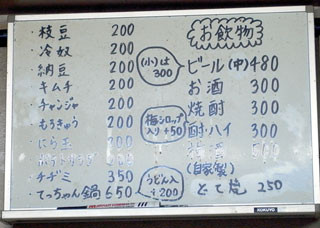 ・枝豆 200
・冷奴 200
・納豆 200
・キムチ 200
・チャンジャ 200
・もろきゅう 200
・にら玉 200
・チヂミ 350
・てっちゃん鍋 650
うどん入
+200
お飲物
(小)は
300
ビール(中)480
お酒 300
焼酎 300
梅シロップ
入り+50
酎・ハイ 300
(自家製)
250
KOKUYO